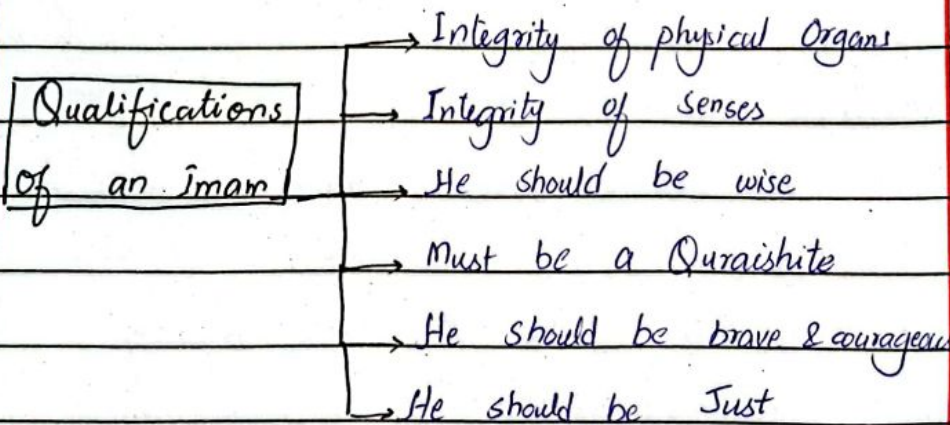 Qualifications
of an imam
Integrity of physical Organs
Integrity of senses
He should be wise
Must be a Quraishite
He should be brave & courageou
He should be Just